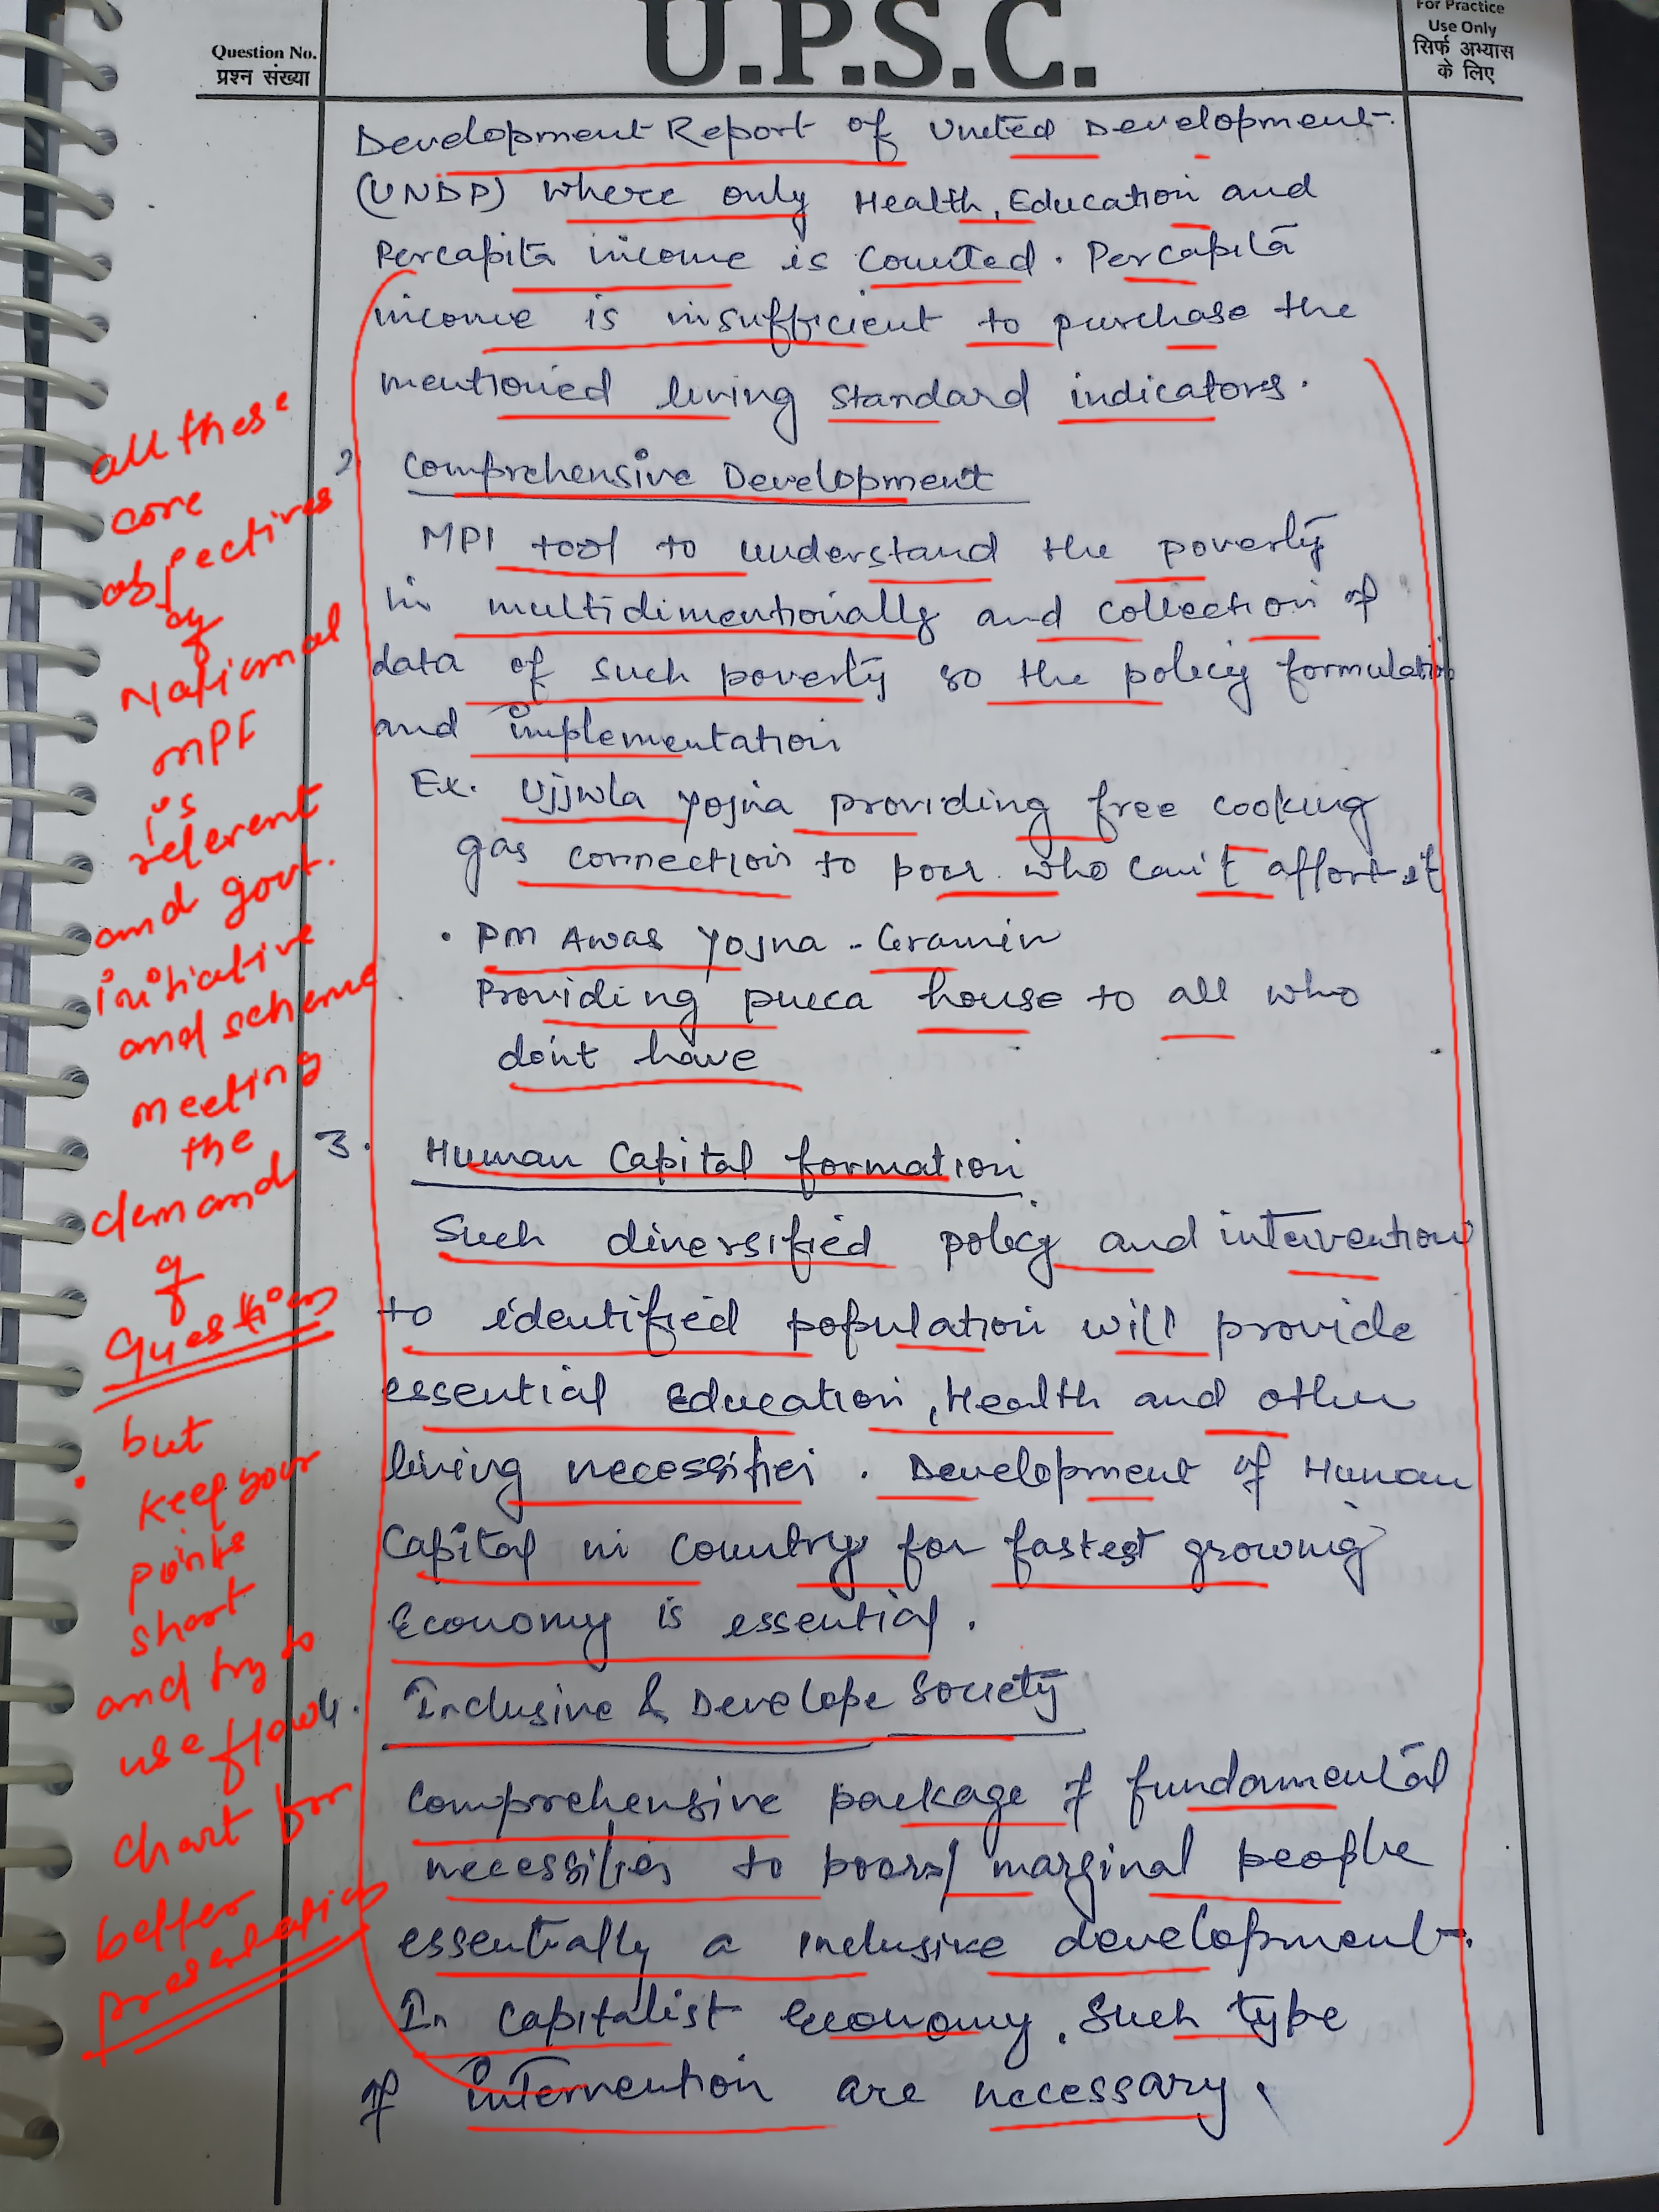 Question No.
प्रश्न संख्या
U.P.S.C.
For Practice
Use Only
सिर्फ अभ्यास
के लिए
Development Report of United Development
(UNDP) where only Health, Education and
Percapita income is Counted. Percapita
income is insufficient to purchase the
mentioned living standard indicators.
2 Comprehensive Development
MPI tool to understand the poverty
in multidimentionally and collection of
data of such poverty so the policy formulation
and implementation
Ex. Ujjwla Yojna providing free cooking
gas connection to poor who can't affort it
• PM Awas Yojna - Gramin
Providing pucca house to all who
don't have
3. Human Capital formation
Such diversified policy and intervention
to identified population will provide
essential Education, Health and other
living necessities. Development of Human
Capital in Country for fastest growing
Economy is essential.
4. Inclusive & Develope Society
Comprehensive package of fundamental
necessities to poors/ marginal people
essentially a inclusive development.
In Capitalist Economy, Such type
of intervention are necessary.
all these
core
objectives
of
National
MPI
is
relerent
and govt.
initiative
and scheme
meeting
the
demand
of
Question
• but
keep your
points
short
and try to
use flow
chart for
better
presentation